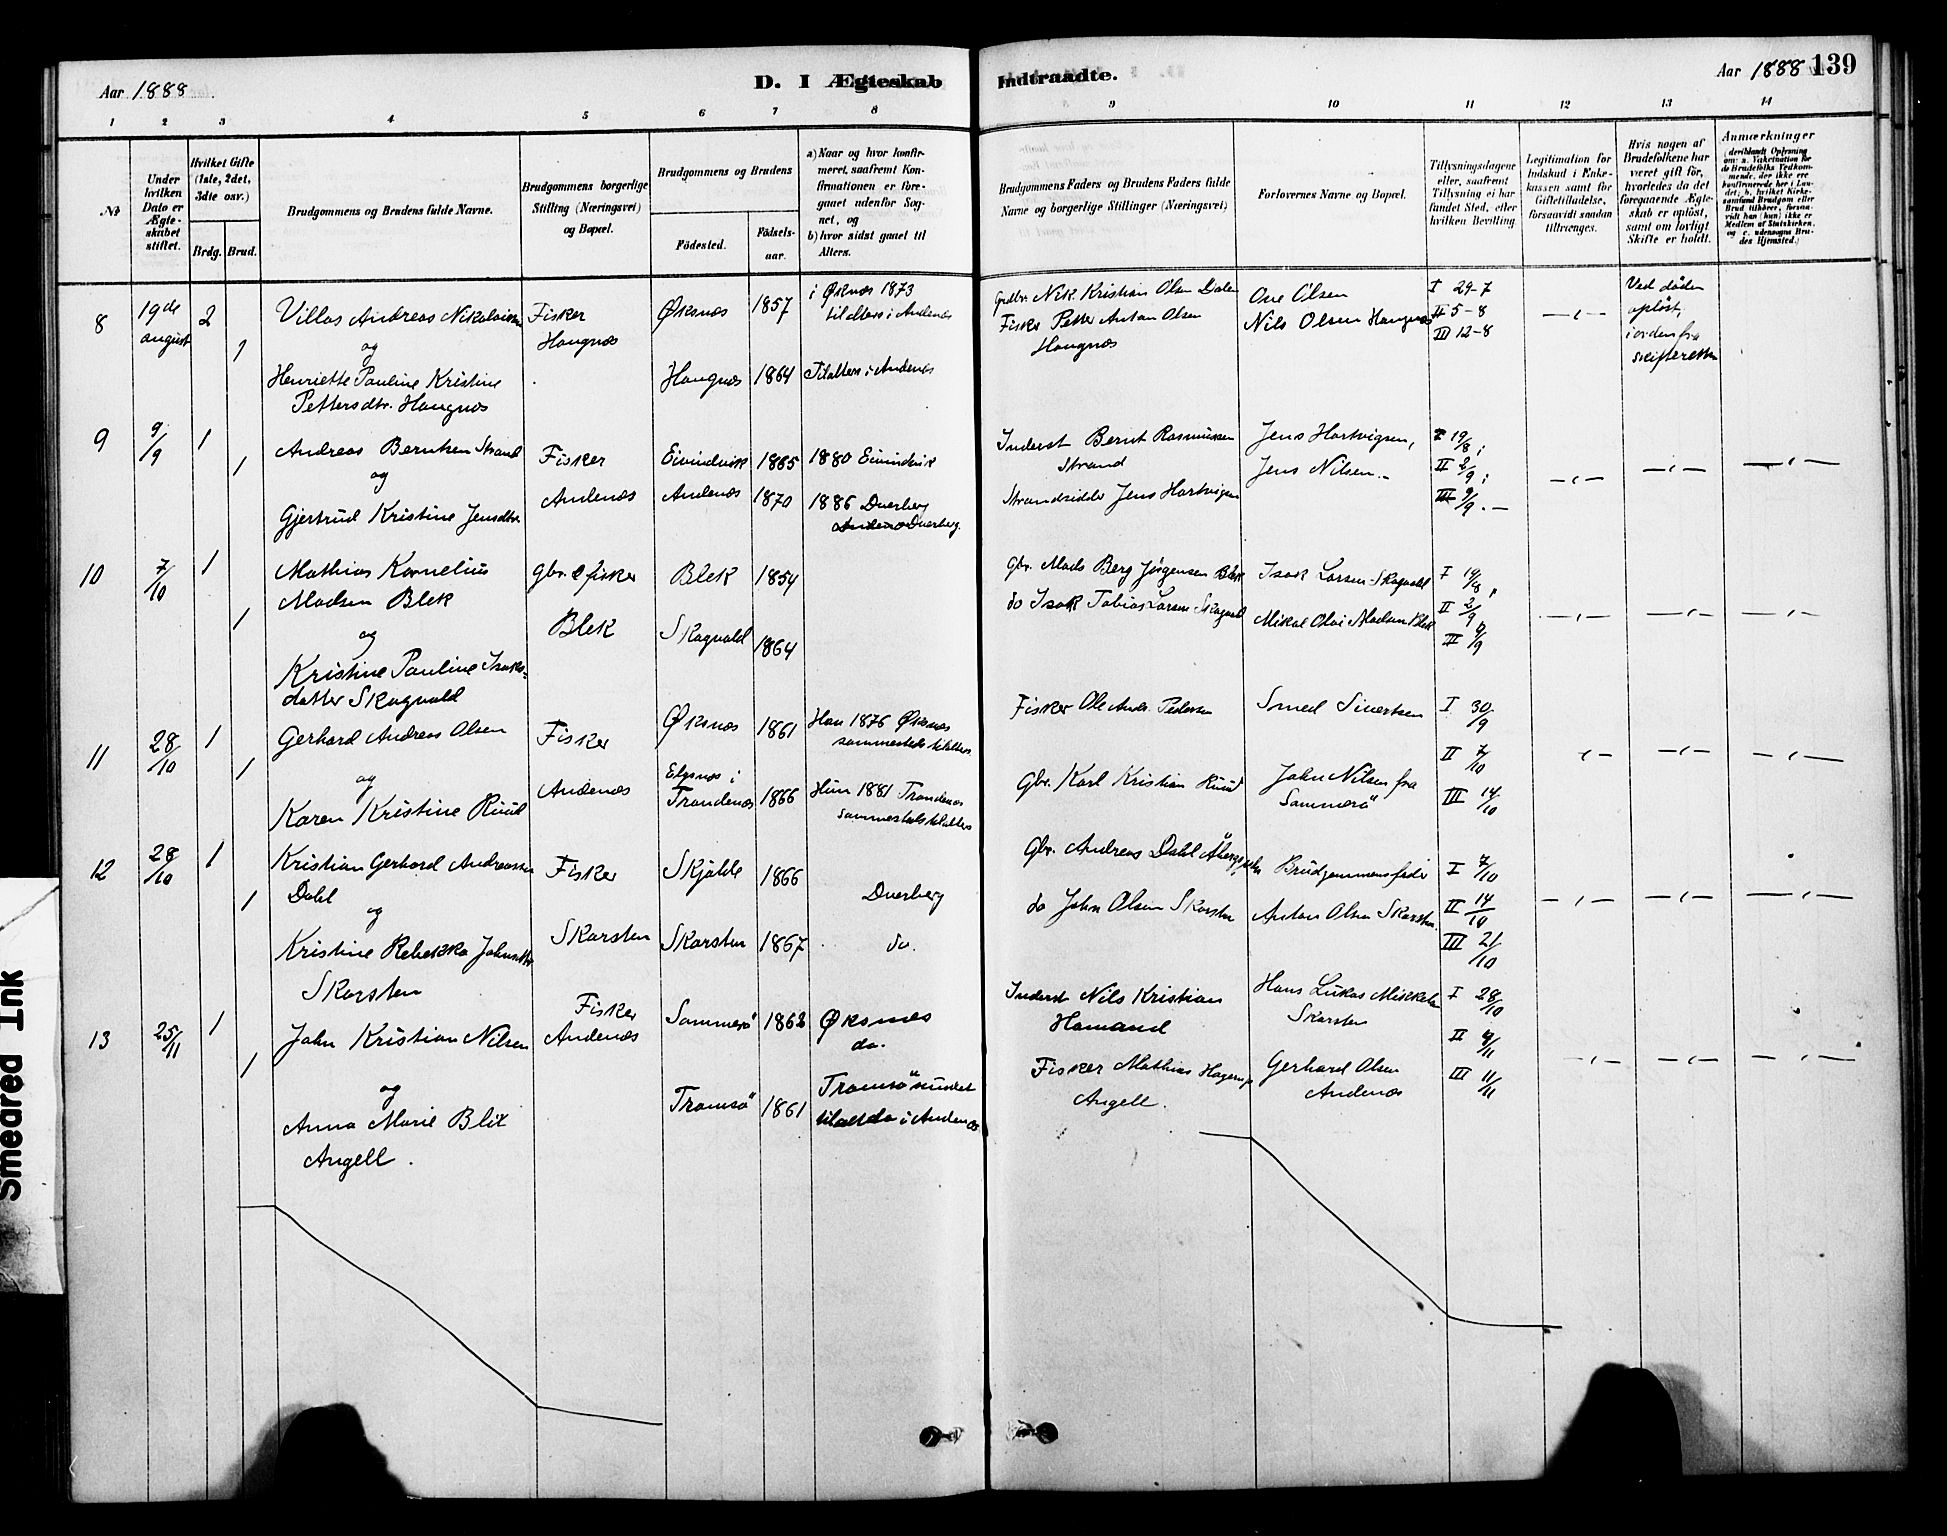 Aar 1888
D. I Ægteskab Indtraadte.
Aar 1888 139
1 2 3 4 5 6 7 8 9 10 11 12 13 14
№
Under hvilken Dato er Ægteskabet stiftet.
Hvilket Gifte (1ste, 2det, 3die osv.)
Brdg. Brud.
Brudgommens og Brudens fulde Navne.
Brudgommens borgerlige Stilling (Næringsvei) og Bopæl.
Brudgommens og Brudens
Födested.
Födselsaar.
a) Naar og hvor konfirmeret, saafremt Konfirmationen er foregaaet udenfor Sognet, og
b) hvor sidst gaaet til Alters.
Brudgommens Faders og Brudens Faders fulde Navne og borgerlige Stillinger (Næringsvei)
Forlovernes Navne og Bopæl.
Tillysningsdagene eller, saafremt Tillysning ei har fundet Sted, efter hvilken Bevilling
Legitimation for Indskud i Enkekassen samt for Giftetilladelse, forsaavidt saadan tiltrænges.
Hvis nogen af Brudefolkene har været gift før, hvorledes da det foregaaende Ægteskab er oplöst, samt om lovligt Skifte er holdt.
Anmærkninger
8 19de august 2 1
Villas Andreas Nikolaisen
og
Henriette Pauline Kristine
Pettersdtr. Haugnæs
Fisker
Haugnæs
Øksnæs 1857
i Øksnæs 1873
til alters i Andenæs
Haugnæs 1864 Tilalters i Andenæs
Nik. Kristian Olsen Dalen
Fisker Petter Anton Olsen
Haugnæs
Ove Olsen
Nils Olsen Haugnæs
I 29-7
II 5-8
III 12-8
Ved døden
opløst,
i orden fra
skifteretten
9 9/9 1 1
Andreas Berntsen Strand
og
Gjertrud Kristine Jensdtr
Fisker
Andenæs
Eivindvik 1865 1880 Eivindvik
Andenæs 1870 1886 Dverberg
Dverberg.
Inderst Bernt Rasmussen
Strand
Strandsidder Jens Hartvigsen
Jens Hartvigsen,
Jens Nilsen.-
I 19/8;
II 2/9;
III 9/9.
10 7/10 1 1
Mathias Kornelius
Madsen Blek
og
Kristine Pauline Isaks-
datter Skogvold
gbr. & fisker
Blek
Blek 1854
Skogvold 1864
Gbr. Mads Berg Jørgensen Blek
do Isak Tobias Larsen Skogvold
Isak Larsen Skogvold
Mikal Olai Madsen Blek
I 19/8,
II 2/9
III 9/9
11 28/10 1 1
Gerhard Andreas Olsen
og
Karen Kristine Ruud
Fisker
Andenæs
Øksnæs 1861
Han 1876 Øksnæs
sammesteds tilalters
Elgsnæs i
Trondenæs 1866
Hun 1881 Trondenæs
sammesteds tilalters
Fisker Ole Andr. Pedersen
Gbr. Karl Kristian Ruud
Smed Sivertsen
John Nilsen fra
Sommerø
I 30/9
II 7/10
III 14/10
12 28/10 1 1
Kristian Gerhard Andreassen
Dahl
og
Kristine Rebekka Johnsdtr
Skarsten
Fisker
Skarsten
1866
Dverberg
Skarsten 1867 do.
Gbr. Andreas Dahl
do John Olsen Skarsten
Brudgommens fader
Anton Olsen Skarsten.
I 7/10
II 14/10
III 21/10
13 25/11 1 1
John Kristian Nilsen
og
Anna Marie Blix
Angell.
Fisker
Andenæs
Sommerø 1862 Øksnes
do.
Tromsø 1861 Tromsøsundet
i Andenæs
Inderst Nils Kristian
Fisker Mathias Hagerup
Angell.
Hans Lukas Mikkelsen
Skarsten
Gerhard Olsen
Andenæs
I 28/10
II 4/11
III 11/11
Smeared Ink